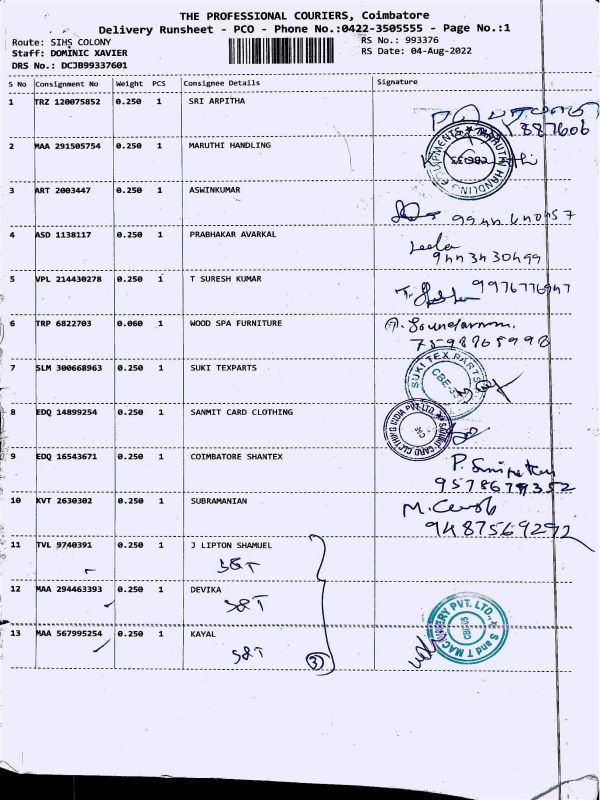 THE PROFESSIONAL COURIERS, Coimbatore
Delivery Runsheet - PCO - Phone No.:0422-3505555 - Page No.:1
Route: SIHS COLONY
RS No.: 993376
Staff: DOMINIC XAVIER
RS Date: 04-Aug-2022
DRS No.: DCJB99337601
S No Consignment No Weight PCS Consignee Details Signature
1 TRZ 120075852 0.250 1 SRI ARPITHA
887606
2 MAA 291505754 0.250 1 MARUTHI HANDLING
MARUTHI HANDLING EQUIPMENTS
3 ART 2003447 0.250 1 ASWINKUMAR
4 ASD 1138117 0.250 1 PRABHAKAR AVARKAL
Leela
9443430499
5 VPL 214430278 0.250 1 T SURESH KUMAR
9976776947
6 TRP 6822703 0.060 1 WOOD SPA FURNITURE
7 SLM 300668963 0.250 1 SUKI TEXPARTS
SUKI TEX PARTS
8 EDQ 14899254 0.250 1 SANMIT CARD CLOTHING
SANMIT CARD CLOTHING INDIA PVT.LTD.
9 EDQ 16543671 0.250 1 COIMBATORE SHANTEX
9578679352
10 KVT 2630302 0.250 1 SUBRAMANIAN
9487569292
11 TVL 9740391 0.250 1 J LIPTON SHAMUEL
S&T
12 MAA 294463393 0.250 1 DEVIKA
S&T
13 MAA 567995254 0.250 1 KAYAL
S&T
3
S and T MACHINERY PVT. LTD.,